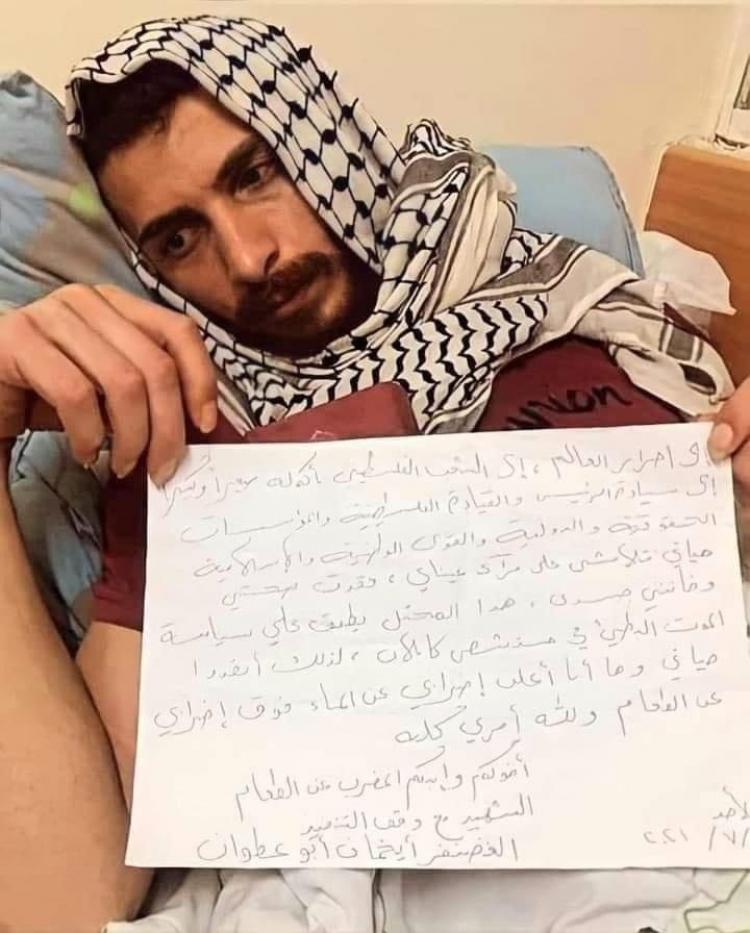 union
إلى أحرار العالم ، إلى الشعب الفلسطيني بأكمله صغيراً وكبيراً
إلى سيادة الرئيس والقيادة الفلسطينية والمؤسسات
الحقوقية والدولية والقوى الوطنية والإسلامية
حياتي تتلاشى على مرآى عيناي ، فقدت صحتي
وخانني جسدي ، هذا المحتل يطبق علي سياسة
الموت البطيئ في مستشفى كابلان ، لذلك أنقذوا
حياتي وها أنا أعلن إضرابي عن الماء فوق إضرابي
عن الطعام ولله أمري كله
أخوكم وإبنكم المضرب عن الطعام
الشهيد مع وقف التنفيذ
الغضنفر أبو عطوان
الأحد
/٧/ ٢٠٢١